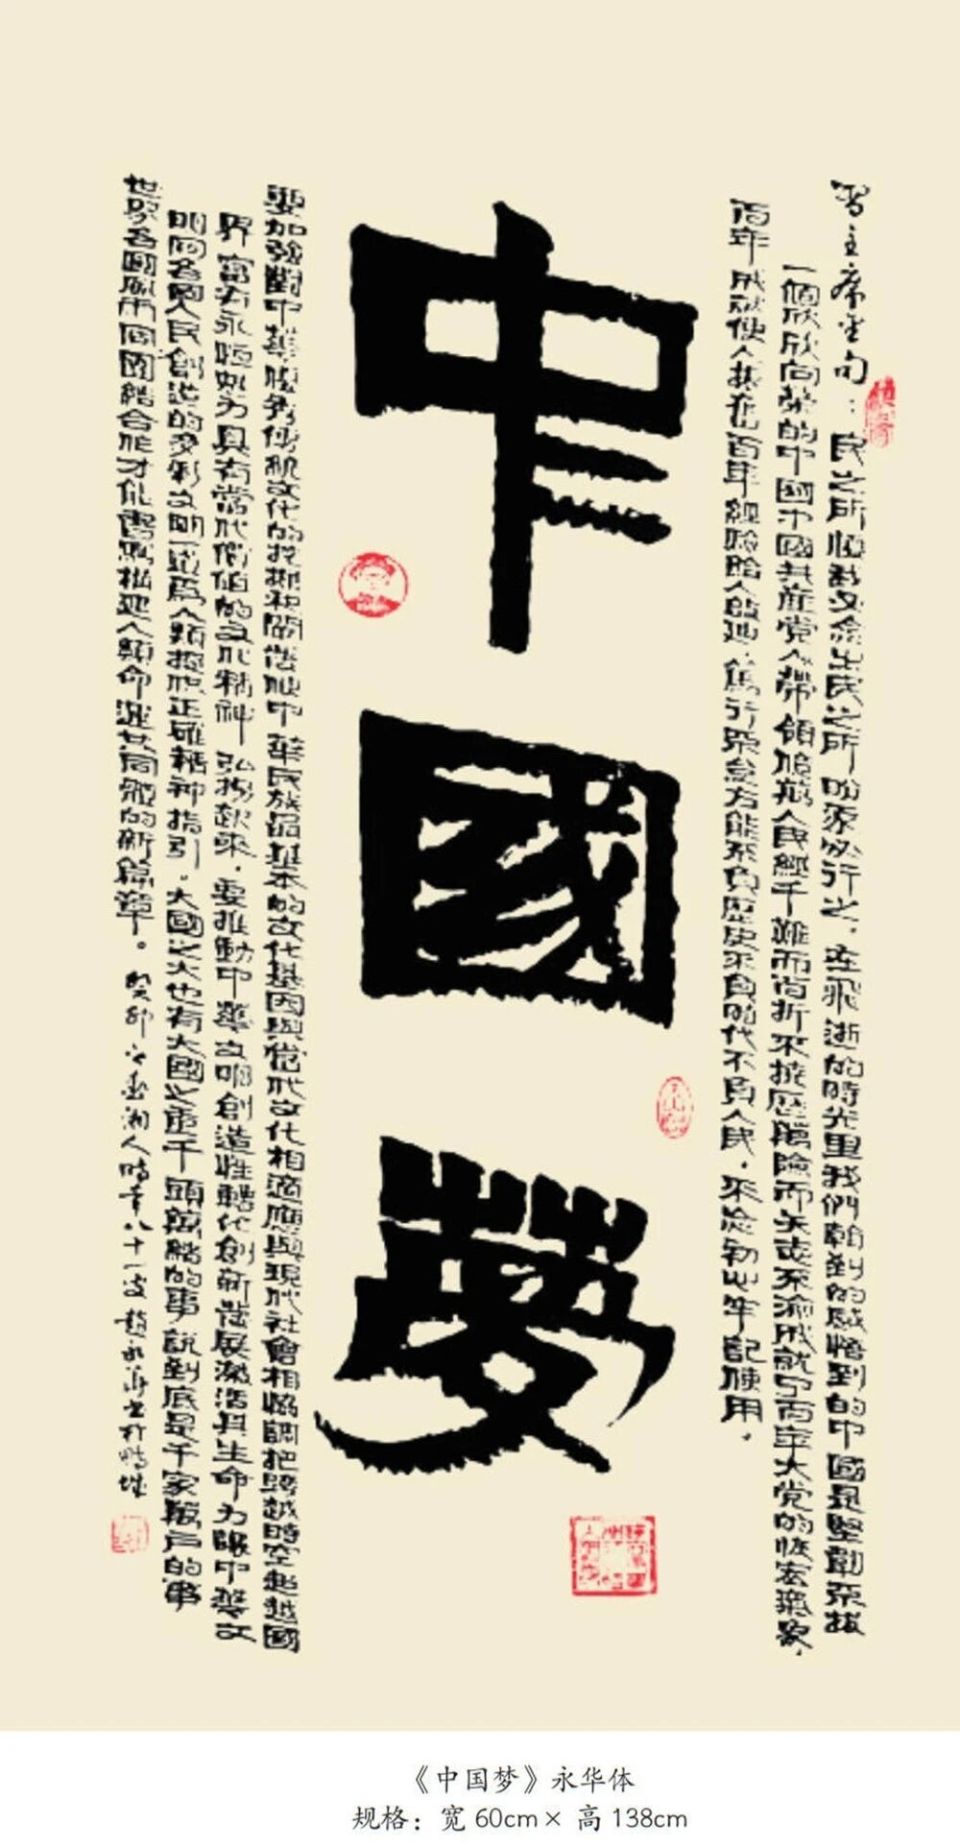 習主席金句：民之所憂我必念之民之所盼我必行之．在飛逝的時光里我們看到的感悟到的中國是堅韌不拔
一個欣欣向榮的中國中國共產党人帶領億萬人民經千難而百折不撓歷萬險而矢志不渝成就了百年大党的恢宏氣象．
百年成就使人振奮百年經驗給人啟迪．篤行不怠方能不負歷史不負時代不負人民．不忘初心牢記使用．
中國夢
要加強對中華優秀傳統文化的挖掘和闡發使中華民族最基本的文化基因與當代文化相適應與現代社會相協調把跨越時空超越國
界富有永恒魅力具有當代價值的文化精神弘揚起來．要推動中華文明創造性轉化創新發展激活其生命力讓中華文
明同各國人民創造的多彩文明一道為人類提供正確精神指引。大國之大也有大國之重千頭萬緒的事說到底是千家萬戶的事
世界各國風雨同舟團結合作才能書寫構建人類命運共同體的新篇章。癸卯湘人時年八十一歲趙永華書於
《中国梦》永华体
规格：宽60cm×高138cm